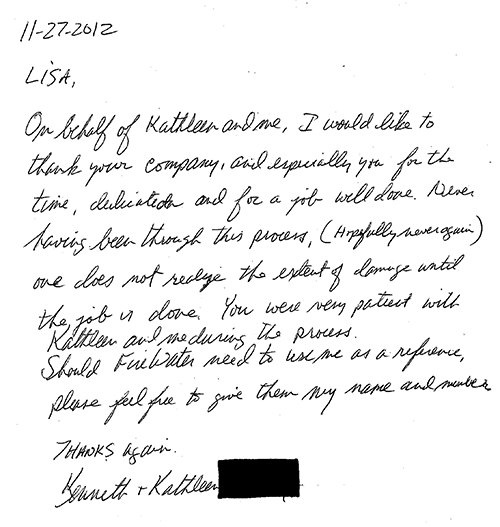 11-27-2012
LiSA,
On behalf of Kathleen and me, I would like to
thank your company, and especially you for the
time, dedication and for a job well done. Never
having been through this process, (Hopefully never again)
one does not realize the extent of damage until
the job is done. You were very patient with
Kathleen and me during the process.
Should FireWater need to use me as a reference,
please feel free to give them my name and number
THANKS again.
Kenneth + Kathleen